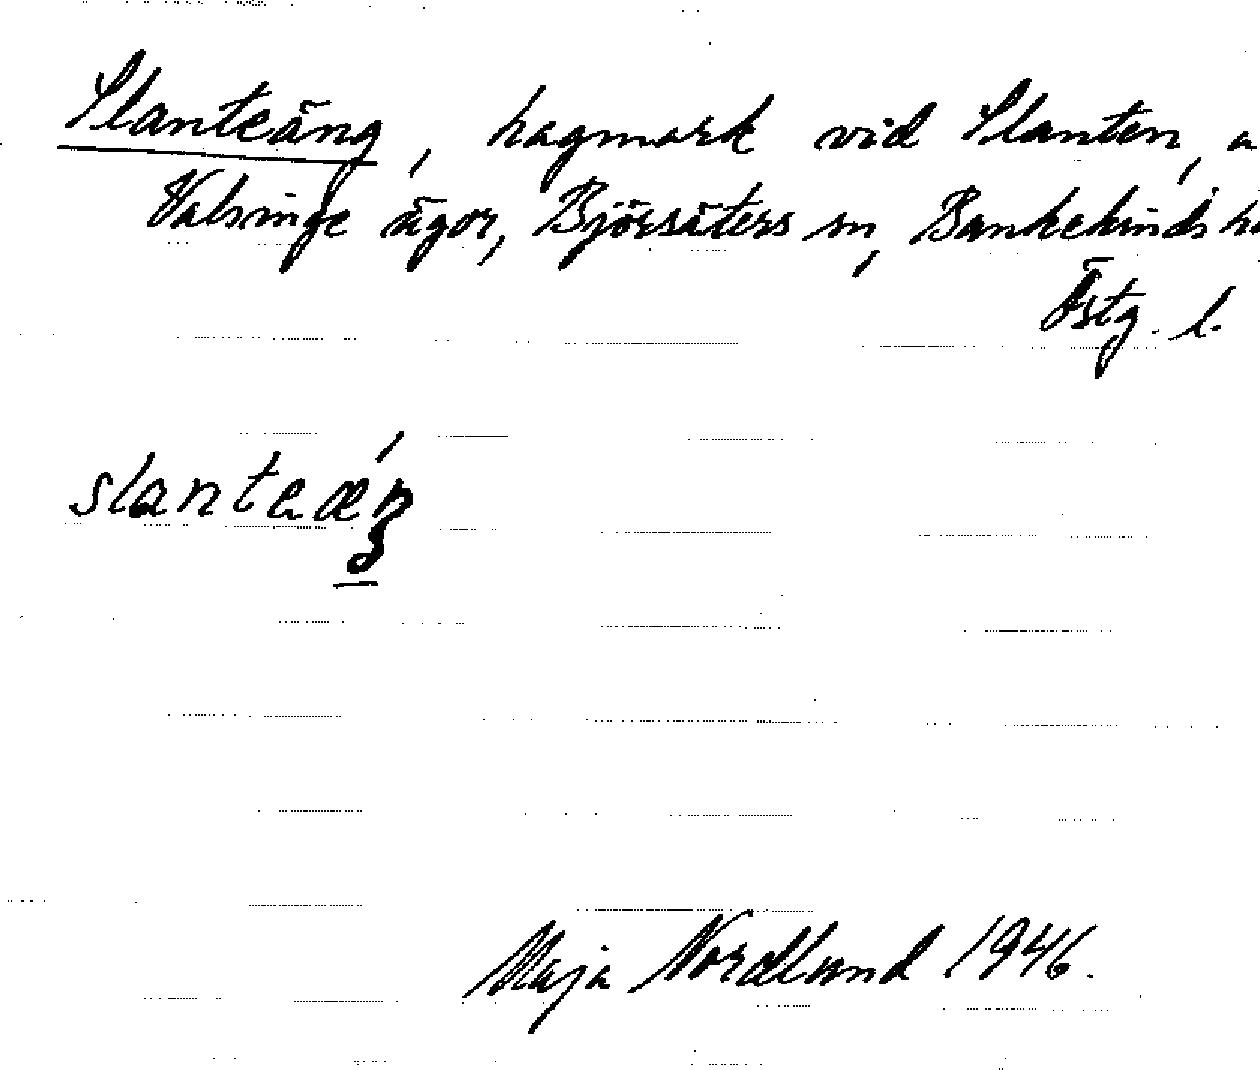 Slanteäng, hagmark vid Slanten, a
Valsinge ägor, Björsäters sn, Bankekinds h
Östg. l.
slanteæŋ
Maja Nordlund 1946.